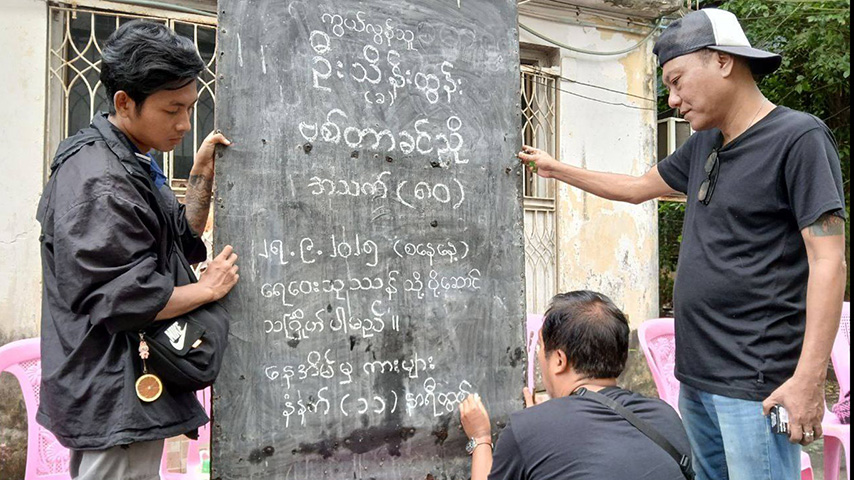 ကွယ်လွန်သူ
ဦးသိန်းထွန်း
(ခ)
မစ်တာခင်ညို
အသက် (၈၀)
၂၇.၉.၂၀၂၅ (စနေနေ့)
ရေဝေးသုဿန် သို့ ပို့ဆောင်
သင်္ဂြိုဟ် ပါမည် ။
နေအိမ်မှ ကားများ
နံနက် (၁၁) နာရီထွက်